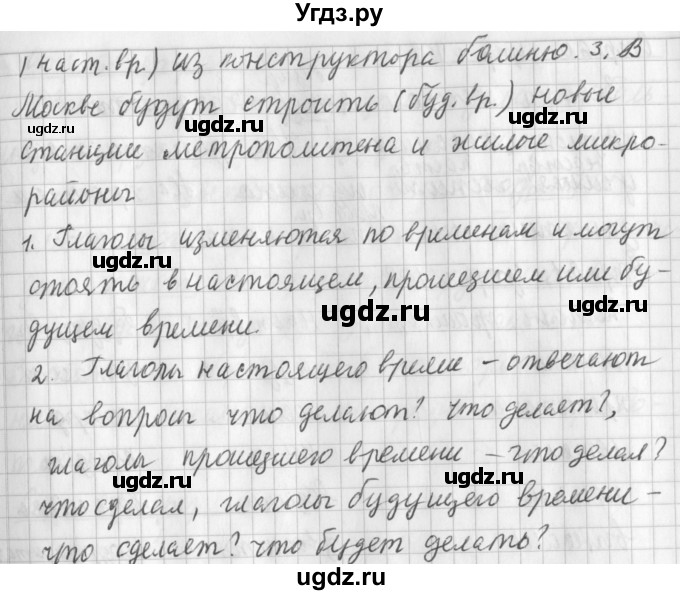 Угдз.ру
(наст.вр.) из конструктора башню. 3. В
Москве будут строить (буд.вр.) новые
станции метрополитена и жилые микро-
районы
1. Глаголы изменяются по временам и могут
стоять в настоящем, прошедшем или бу-
дущем времени.
2. Глаголы настоящего време - отвечают
на вопросы что делают? что делает?,
глаголы прошедшего времени - что делал?
что сделал, глаголы будущего времени -
что сделает? что будет делать?
ugdz.ru
ugdz.ru
ugdz.ru
ugdz.ru
ugdz.ru
ugdz.ru
ugdz.ru
ugdz.ru
ugdz.ru
ugdz.ru
ugdz.ru
ugdz.ru